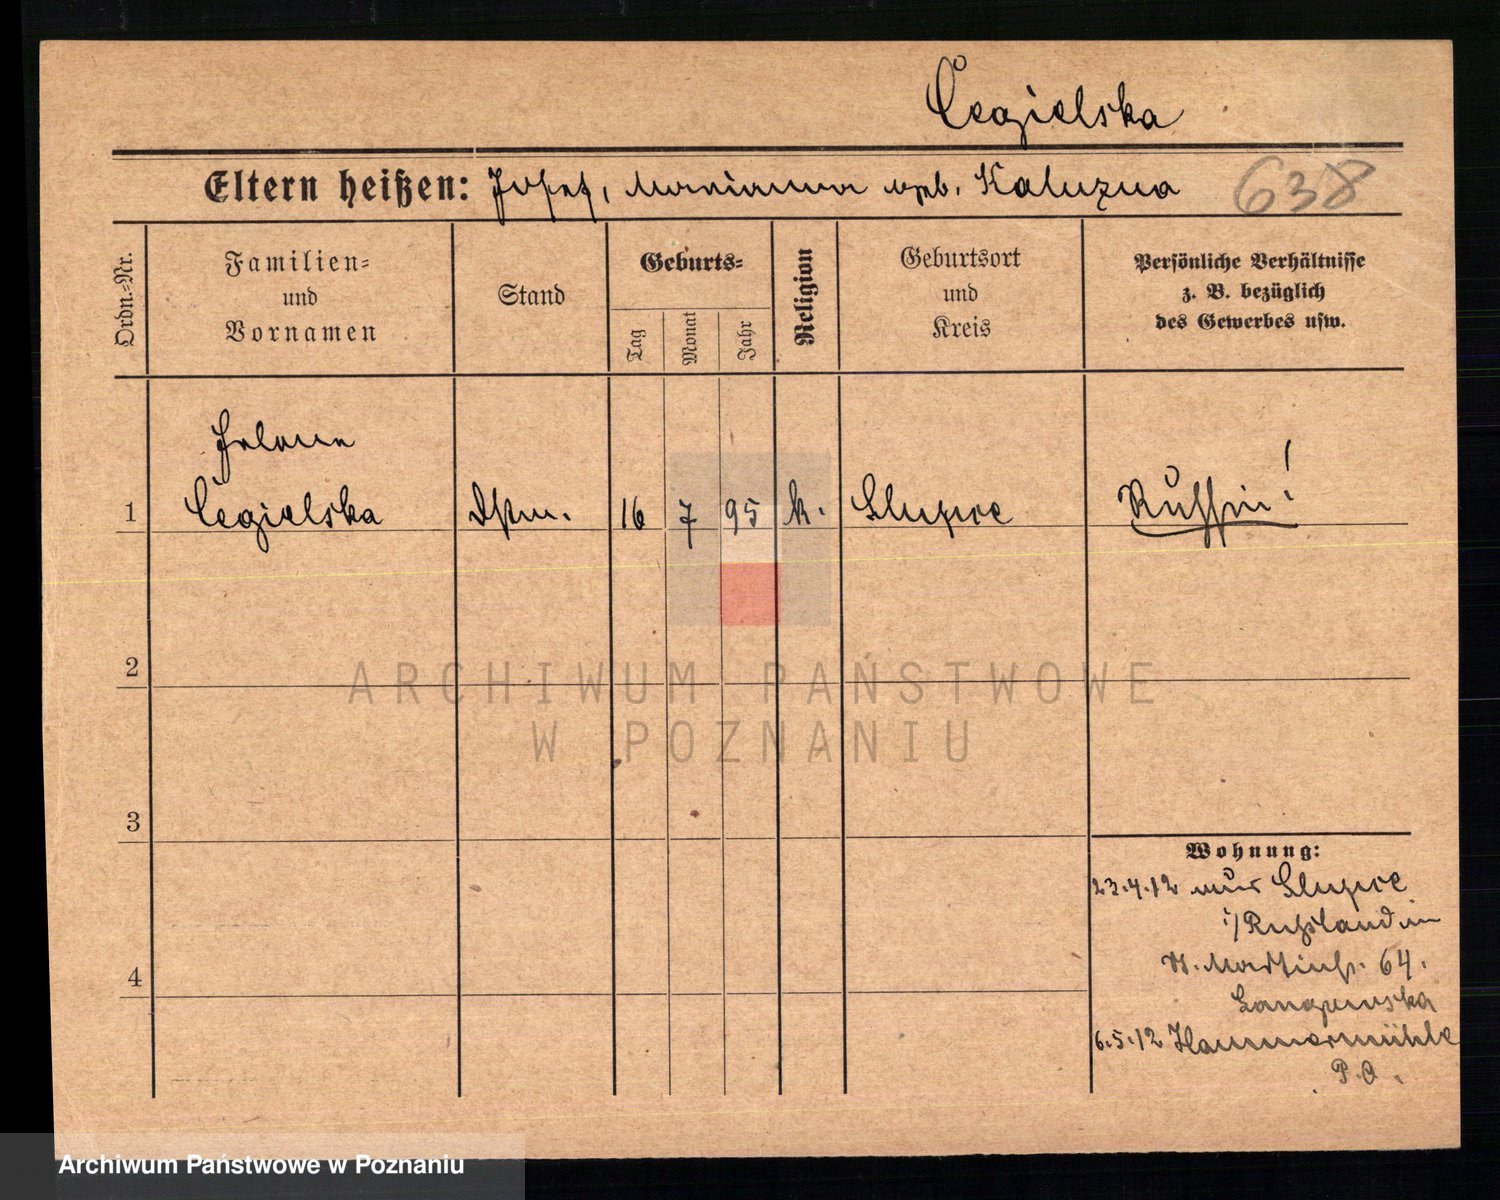 Cegielska
Eltern heißen: Josef, Marianna geb. Kaluzna 638
Ordn.=Nr.
Familien=
und
Vornamen
Stand
Geburts=
Tag
Monat
Jahr
Religion
Geburtsort
und
Kreis
Persönliche Verhältnisse
z. B. bezüglich
des Gewerbes usw.
Helene
1 Cegielska Dstm. 16 7 95 k. Slupce Russin!
2
ARCHIWUM PAŃSTWOWE
W POZNANIU
3
Wohnung:
23.4.12 aus Slupce
i/Russland in
St. Martinstr. 64.
4
6.5.12 Hammermühle
P.O.
Archiwum Państwowe w Poznaniu